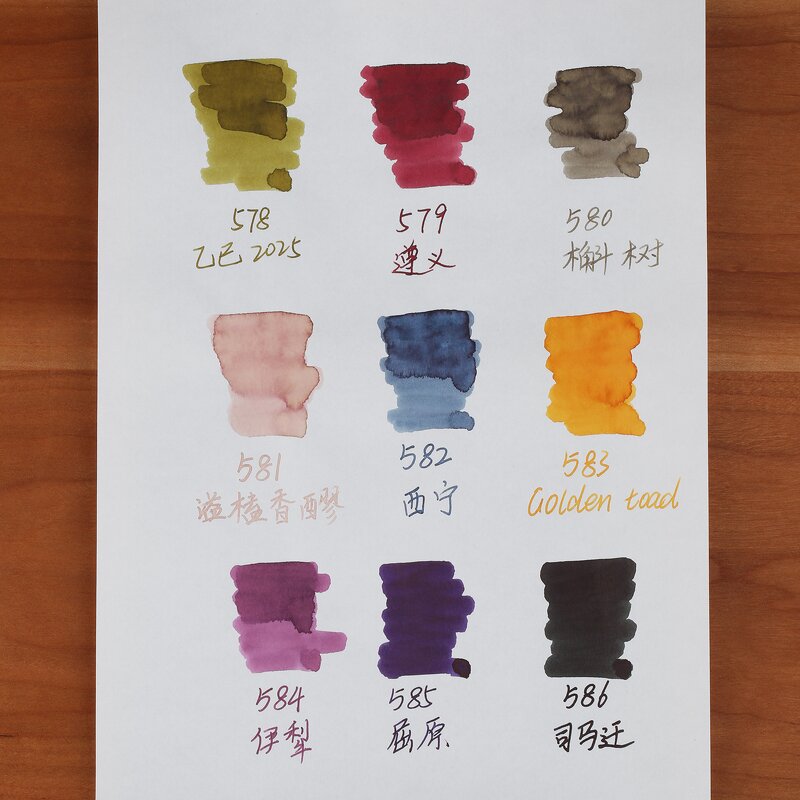 578
乙巳 2025
579
遵义
580
槲树
581
溢榼香醪
582
西宁
583
Golden toad
584
伊犁
585
屈原
586
司马迁